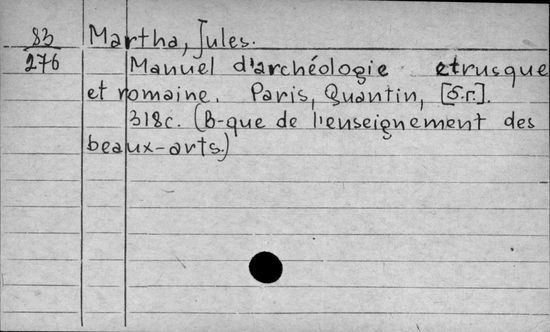 83 Martha, Jules.
276 Manuel d'archéologie etrusque
et romaine. Paris, Quantin, [б.г.].
318c. (B-que de l'enseignement des
beaux-arts.)